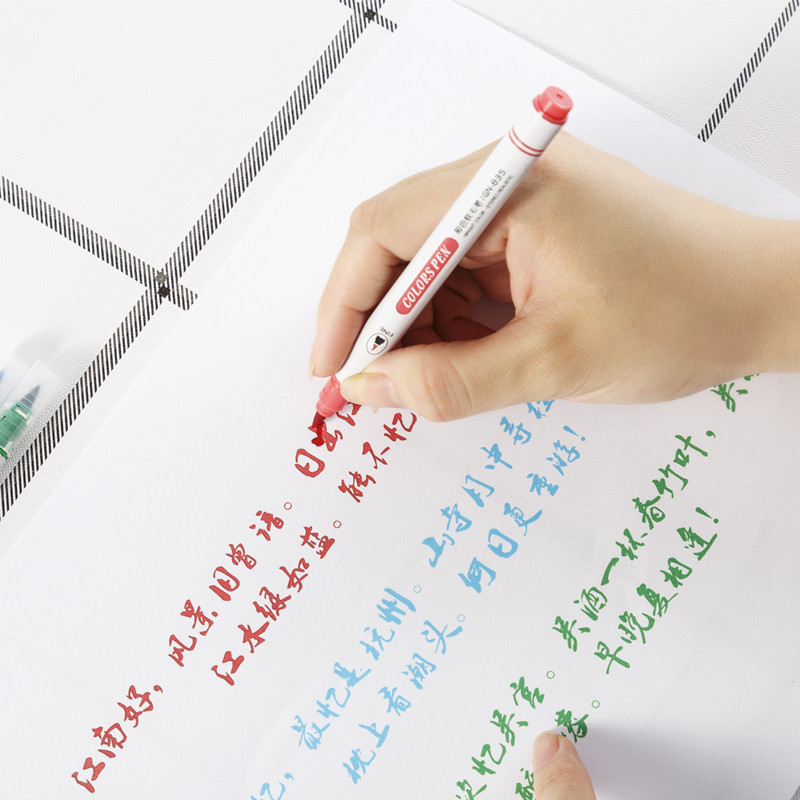 COLORS PEN
GN-835
FINE
江南好,风景旧曾谙。日出江
江水绿如蓝。能不忆
忆,最忆是杭州。山寺月中寻桂
枕上看潮头。何日更重游!
次忆吴宫。吴酒一杯春竹叶,吴
早晚复相逢!